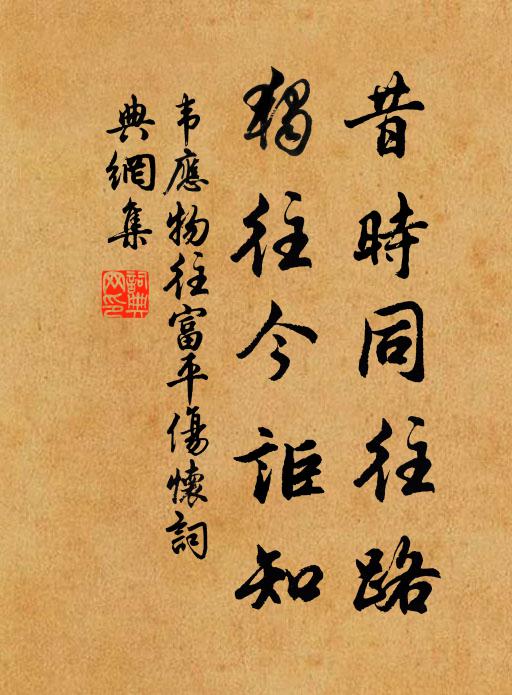 昔時同往路
獨往今詎知
韦應物往富平傷懷詞
典網集
詞典网印